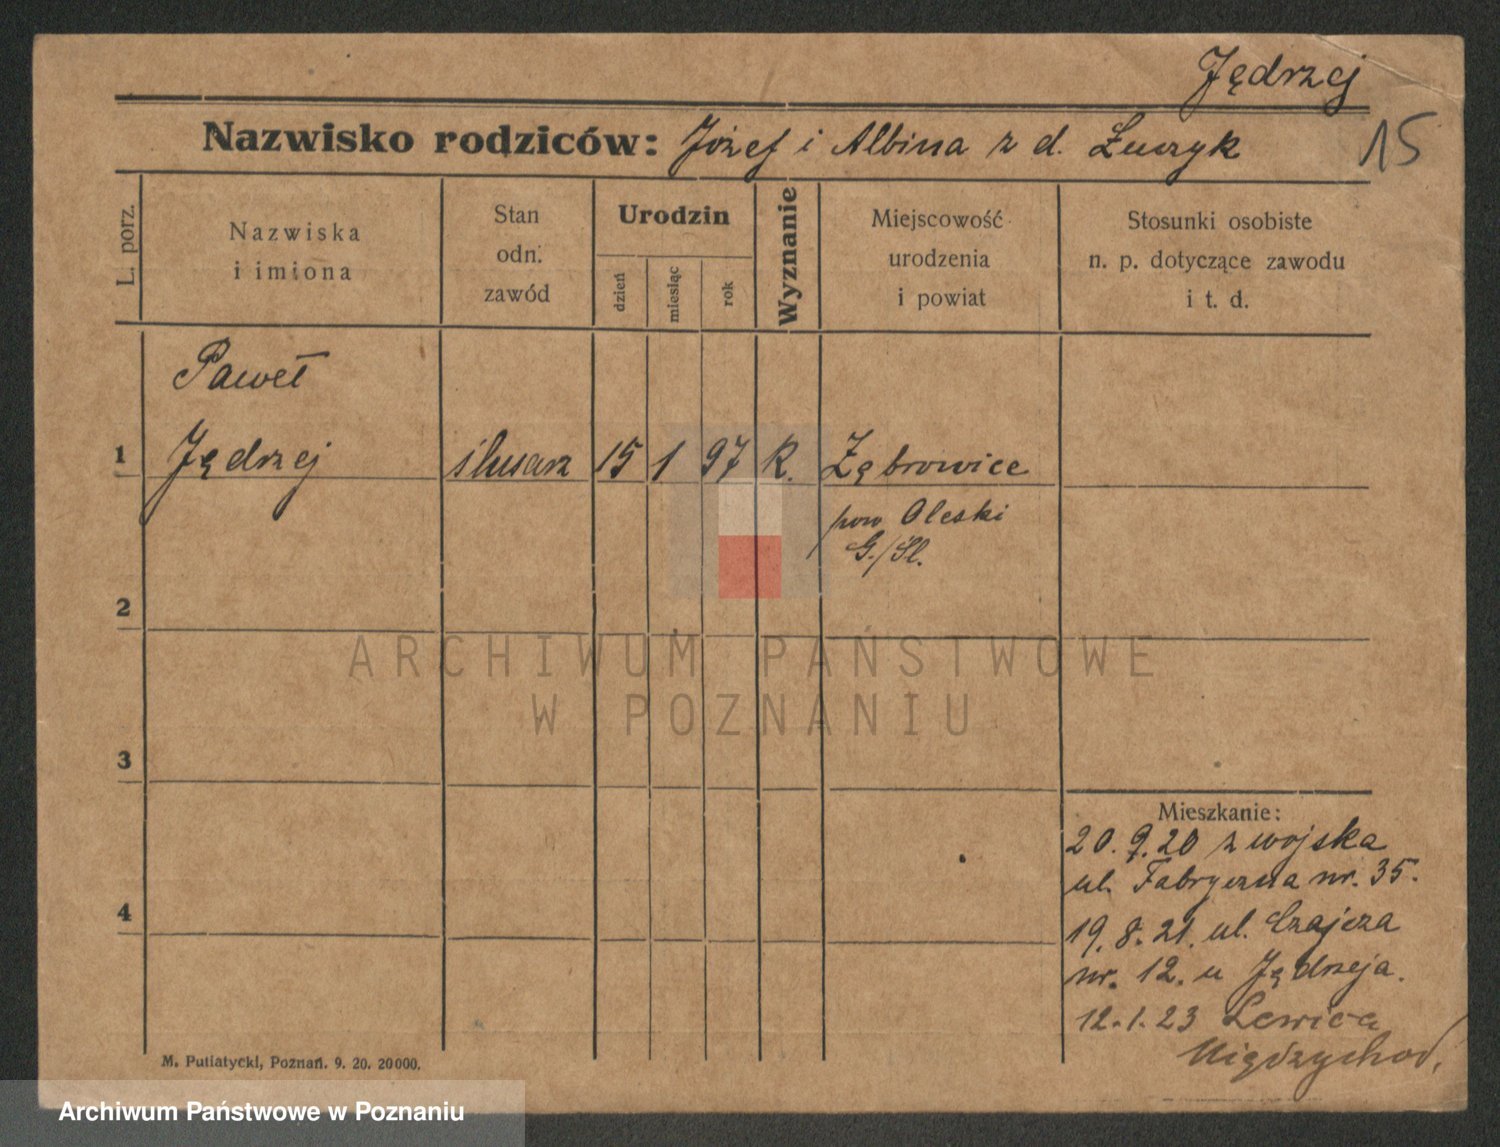 Jędrzej
Nazwisko rodziców: Józef i Albina z d. Łuczyk 15
L. porz.
Nazwiska
i imiona
Stan
odn.
zawód
Urodzin
dzień
miesiąc
rok
Wyznanie
Miejscowość
urodzenia
i powiat
Stosunki osobiste
n. p. dotyczące zawodu
i t. d.
Paweł
1 Jędrzej ślusarz 15 1 97 R. Zębrowice
pow Oleski
G./Śl.
2
ARCHIWUM PAŃSTWOWE
W POZNANIU
3
Mieszkanie:
20.9.20 z wojska
ul. Fabryczna nr. 35.
4
19.8.21. ul. Czajcza
nr. 12. u Jędrzeja.
12.1.23 Lewice
Międzychod,
M. Putiatycki, Poznań. 9. 20. 20000.
Archiwum Państwowe w Poznaniu